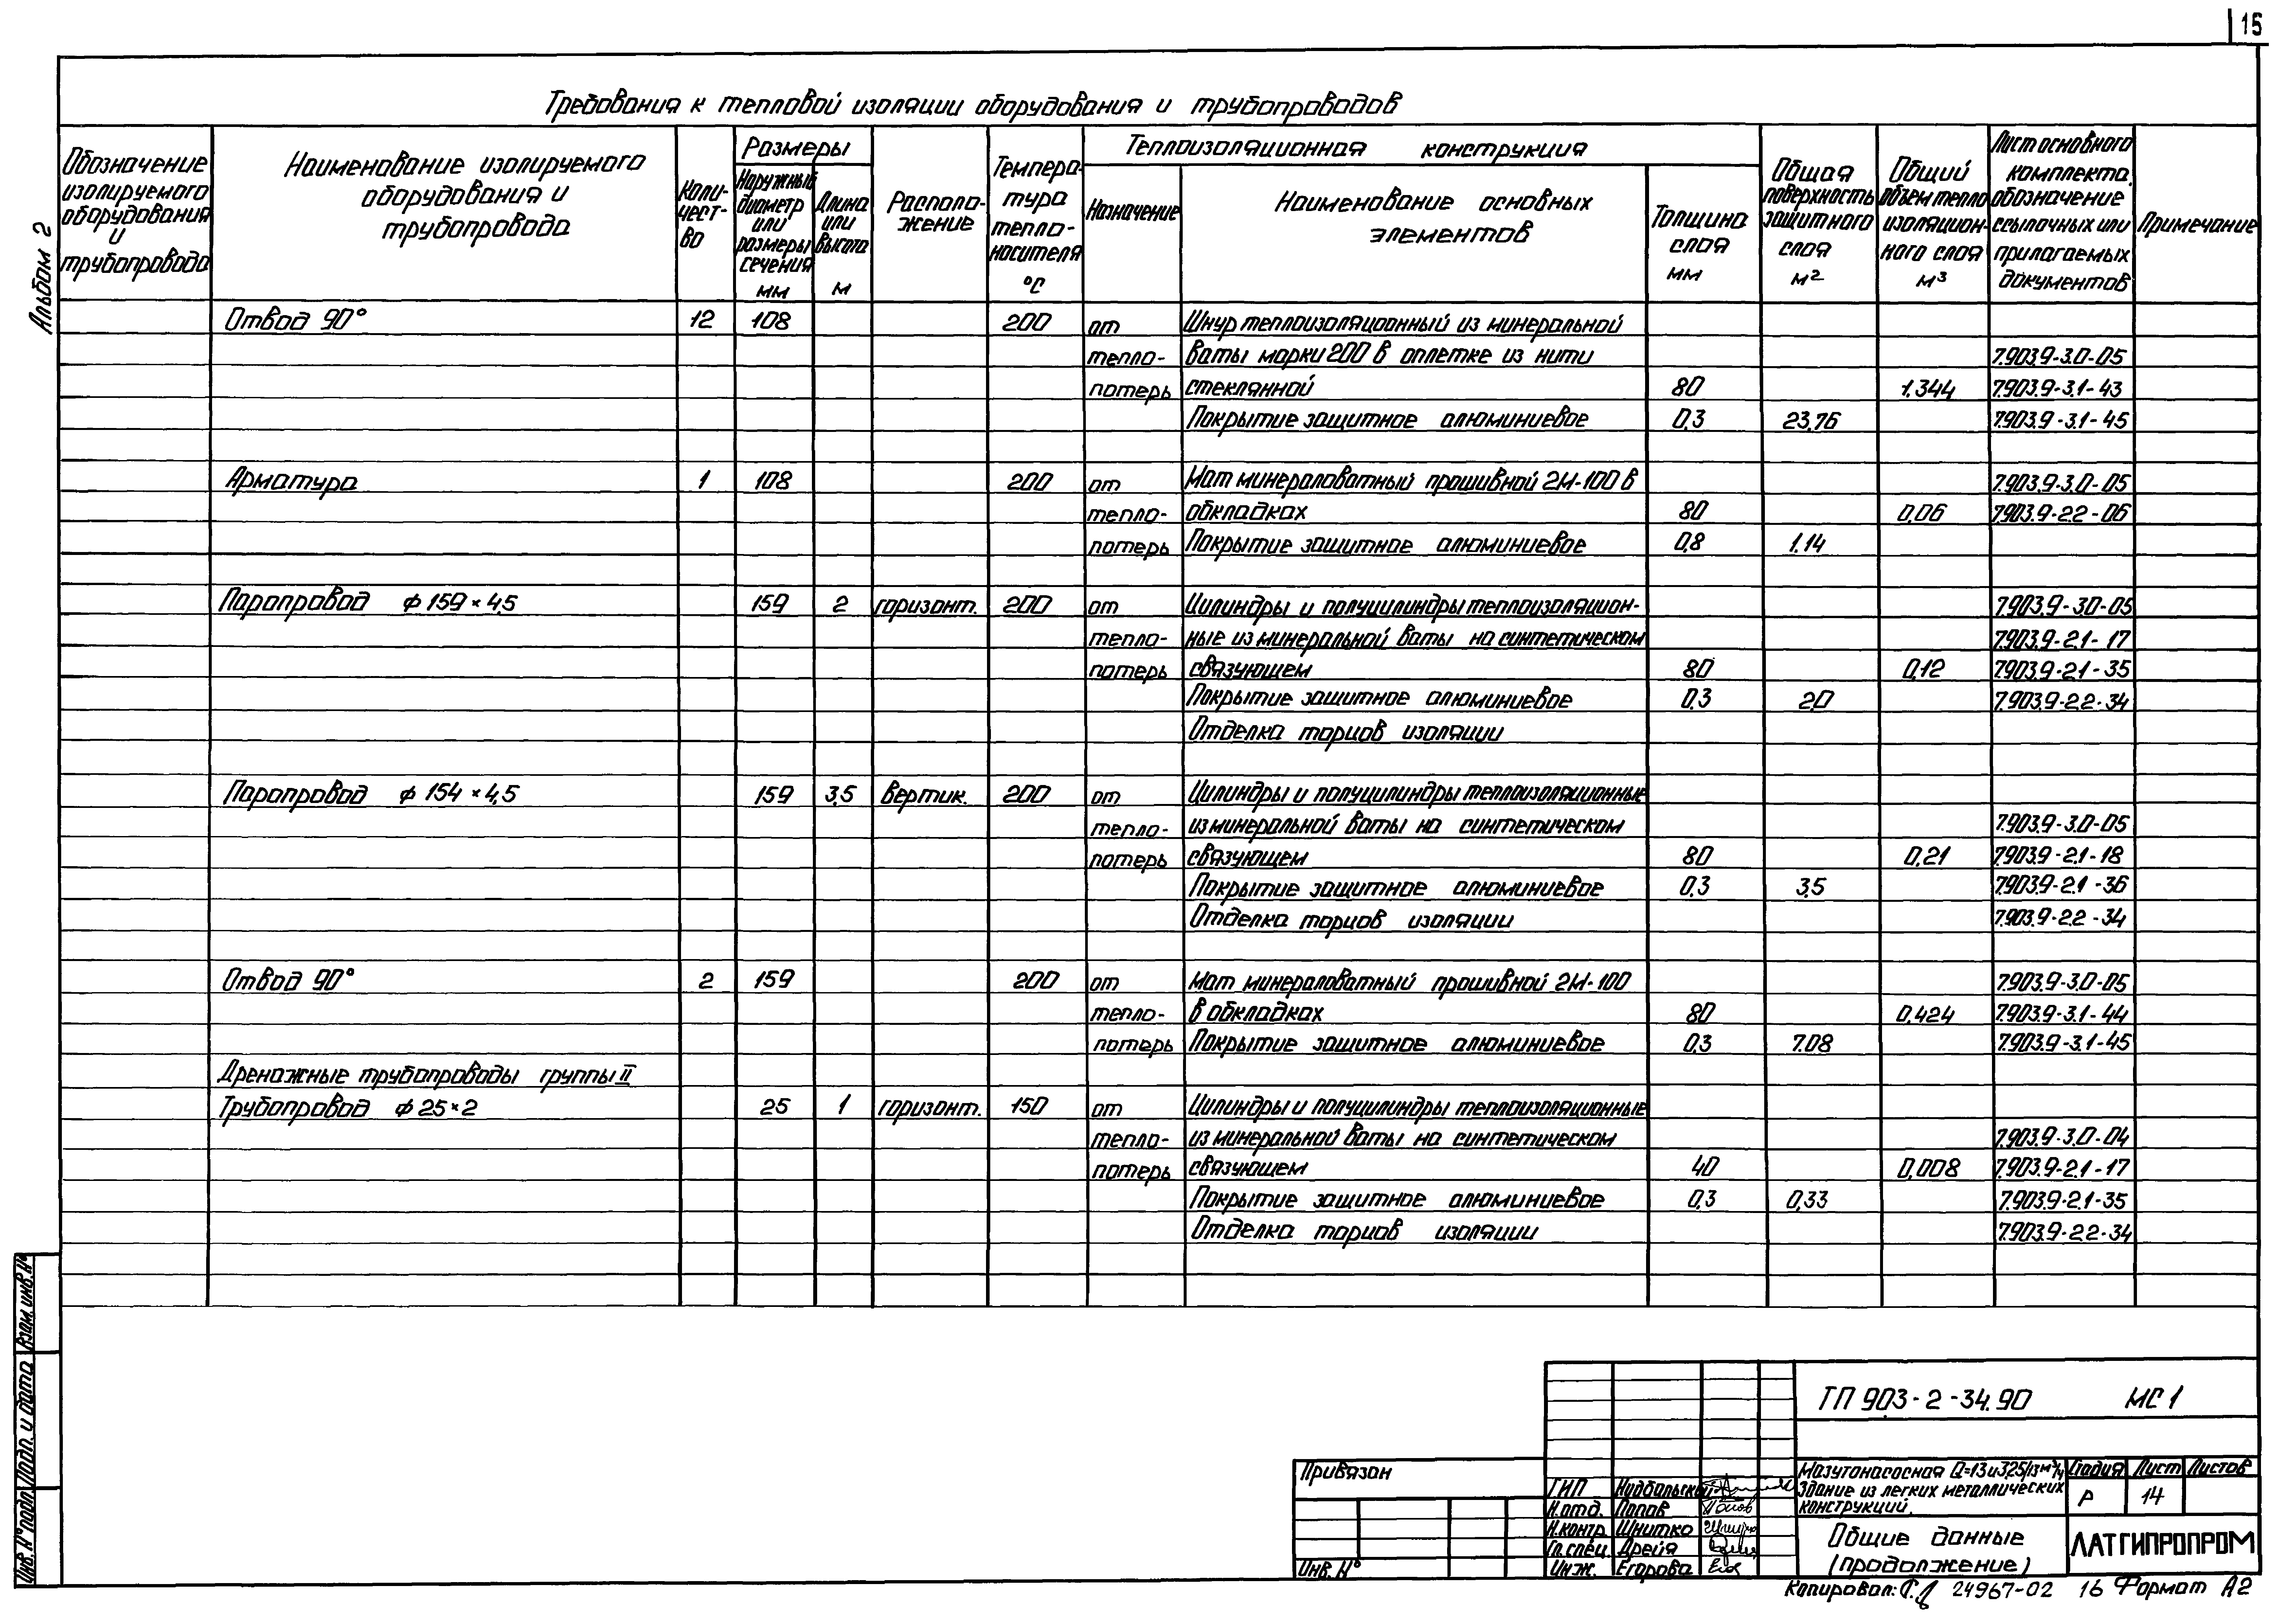 15
Альбом 2
Требования к тепловой изоляции оборудования и трубопроводов
Обозначение изолируемого оборудования и трубопровода
Наименование изолируемого оборудования и трубопровода
Количест-во
Размеры
Наружный диаметр или размеры сечения мм
Длина или высота м
Располо-жение
Темпера-тура тепло-носителя °С
Теплоизоляционная конструкция
Назначение
Наименование основных элементов
Толщина слоя мм
Общая поверхность защитного слоя м²
Общий объем тепло изоляцион-ного слоя м³
Лист основного комплекта, обозначение ссылочных или прилагаемых документов
Примечание
Отвод 90° 12 108 200 от Шнур теплоизоляционный из минеральной
тепло- ваты марки 200 в оплетке из нити 7.903.9-3.0-05
потерь стеклянной 80 1.344 7.903.9-3.1-43
Покрытие защитное алюминиевое 0,3 23,76 7.903.9-3.1-45
Арматура 1 108 200 от Мат минераловатный прошивной 2М-100 в 7.903.9-3.0-05
тепло- обкладках 80 0,06 7.903.9-2.2-06
потерь Покрытие защитное алюминиевое 0,8 1.14
Паропровод ф 159×4,5 159 2 горизонт. 200 от Цилиндры и полуцилиндры теплоизоляцион- 7.903.9-3.0-05
тепло- ные из минеральной ваты на синтетическом 7.903.9-2.1-17
потерь связующем 80 0,12 7.903.9-2.1-35
Покрытие защитное алюминиевое 0,3 2,0 7.903.9-2.2-34
Отделка торцов изоляции
Паропровод ф 154×4,5 159 3,5 Вертик. 200 от Цилиндры и полуцилиндры теплоизоляционные
тепло- из минеральной ваты на синтетическом 7.903.9-3.0-05
потерь связующем 80 0,21 7.903.9-2.1-18
Покрытие защитное алюминиевое 0,3 3,5 7.903.9-2.1-36
Отделка торцов изоляции 7.903.9-2.2-34
Отвод 90° 2 159 200 от Мат минераловатный прошивной 2М-100 7.903.9-3.0-05
тепло- в обкладках 80 0,424 7.903.9-3.1-44
потерь Покрытие защитное алюминиевое 0,3 7.08 7.903.9-3.1-45
Дренажные трубопроводы группы II
Трубопровод ф 25×2 25 1 горизонт. 150 от Цилиндры и полуцилиндры теплоизоляционные
тепло- из минеральной ваты на синтетическом 7.903.9-3.0-04
потерь связующем 40 0,008 7.903.9-2.1-17
Покрытие защитное алюминиевое 0,3 0,33 7.903.9-2.1-35
Отделка торцов изоляции 7.903.9-2.2-34
Инв. № подл. Подп. и дата Взам. инв. №
ТП 903-2-34.90 МС1
Привязан
Инв. №
ГИП
Н.отд. Попов
Н.контр. Шнитко
Гл.спец. Дрейя
Инж. Егорова
Мазутонасосная Q=13 и 3,25/13 м³/ч
Здание из легких металлических
конструкций.
Стадия Лист Листов
Р 14
Общие данные
(продолжение)
ЛАТГИПРОПРОМ
Копировал: 24967-02 16 Формат А2